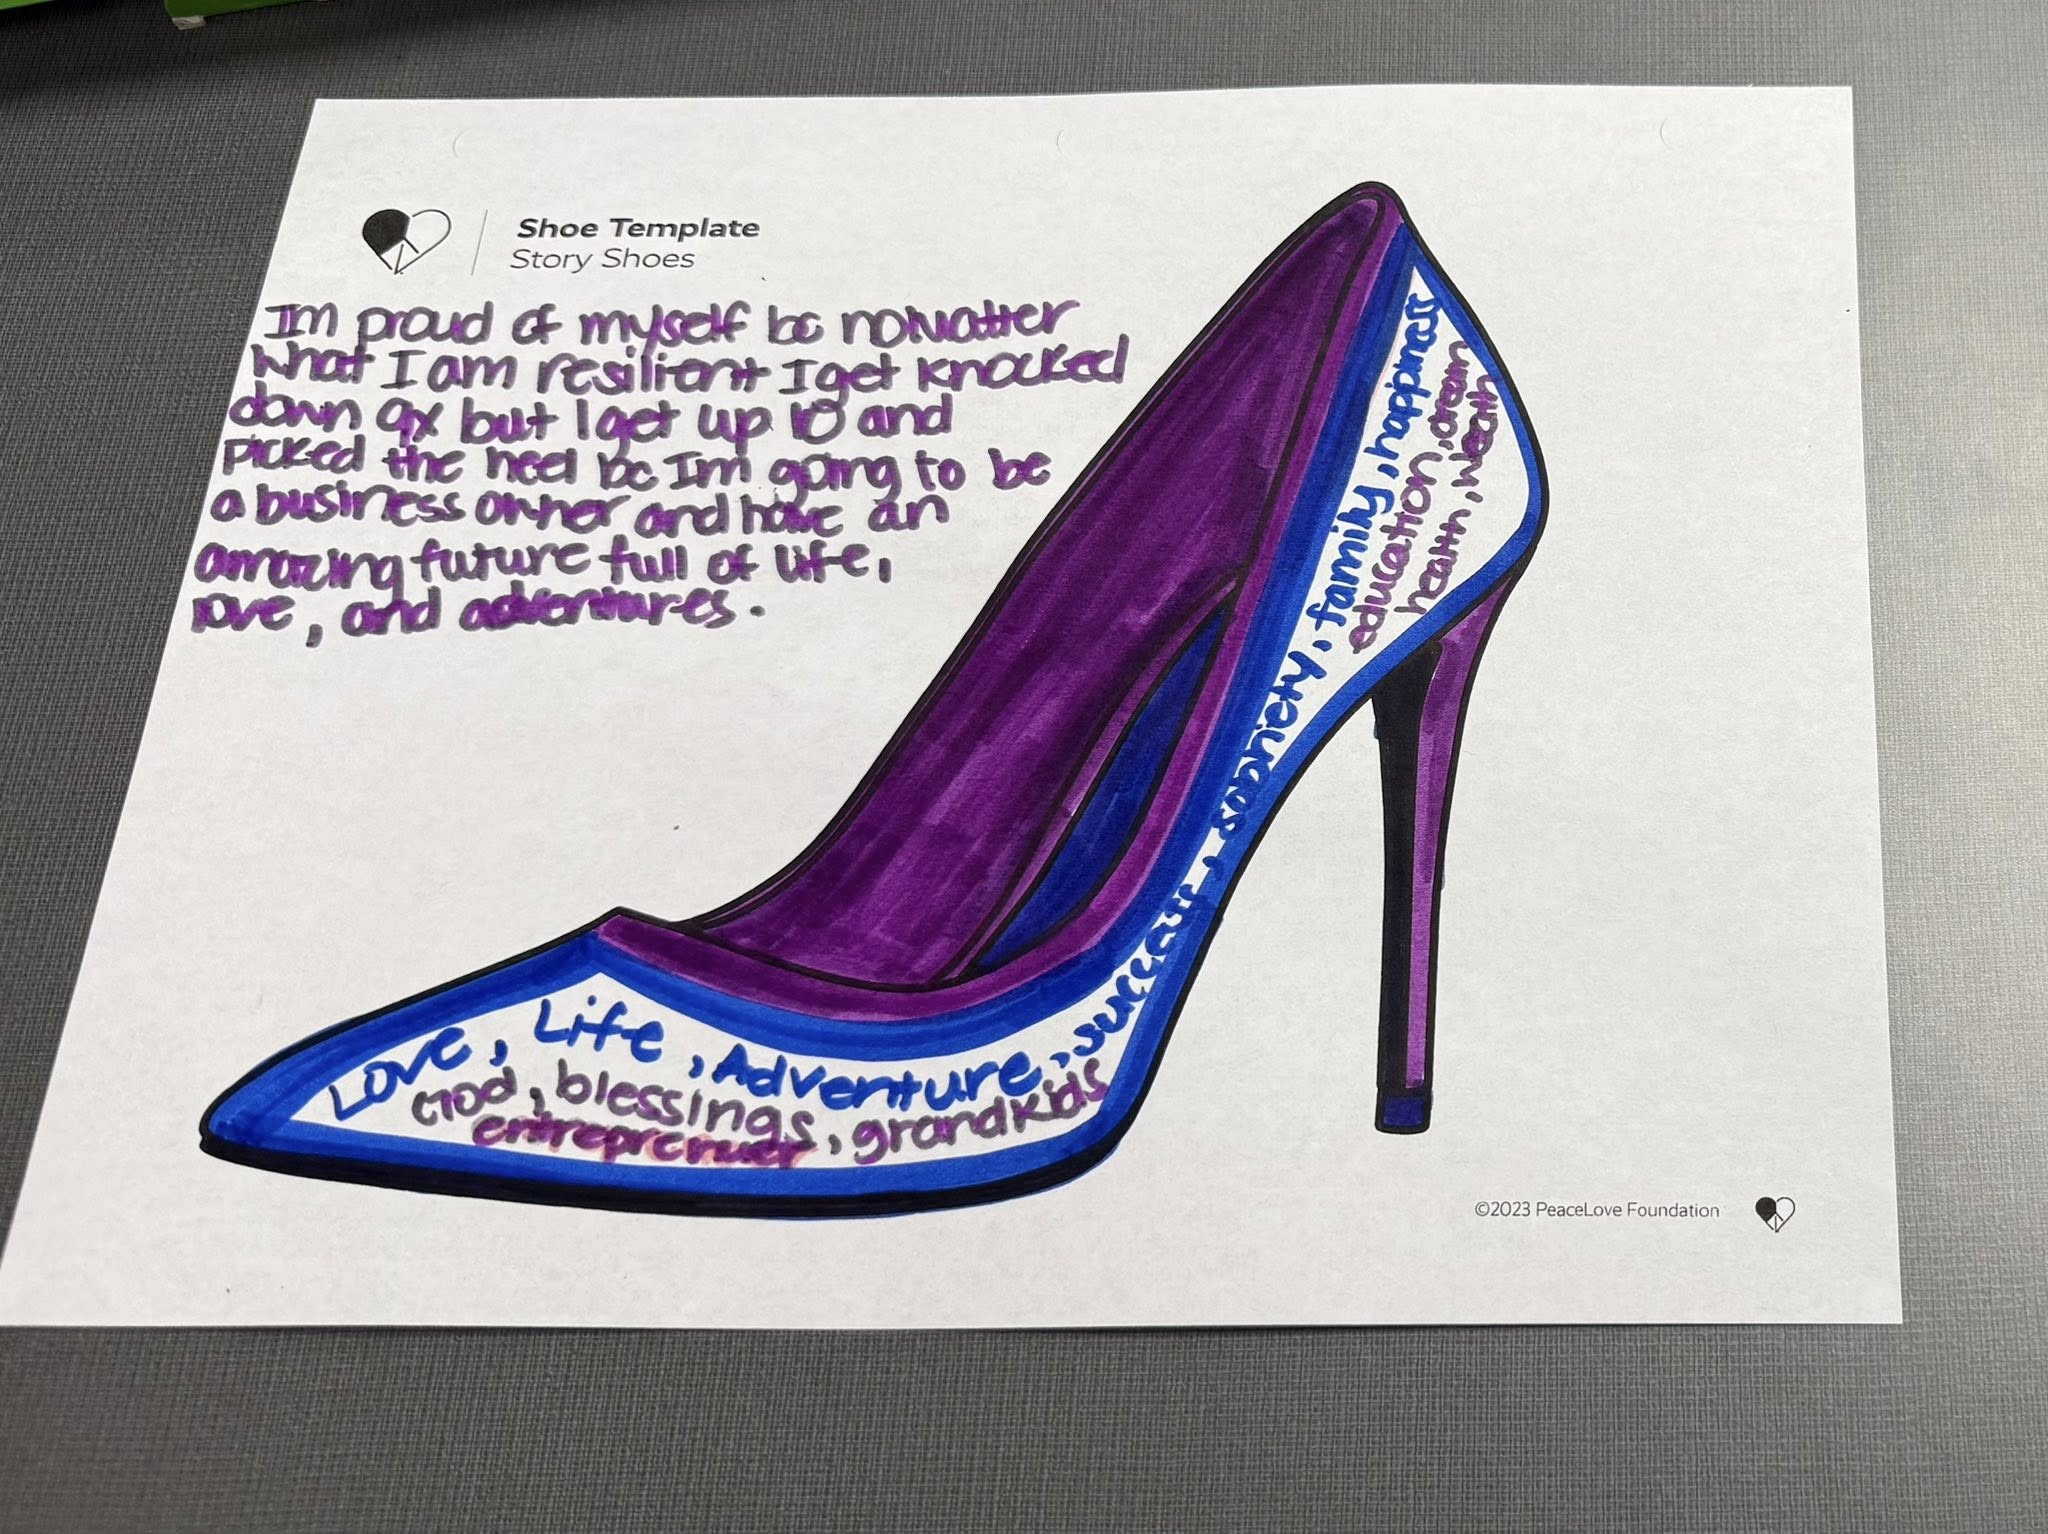 Shoe Template
Story Shoes
Im proud of myself bc no matter
what I am resilient I get knocked
down 9x but I get up 10 and
picked the heel bc Im going to be
a business owner and have an
amazing future full of life,
love, and adventures.
Love, Life, Adventure, success, sobriety, family, happiness
God, blessings, grandkids
entreprenuer
education, dream
health, wealth
©2023 PeaceLove Foundation